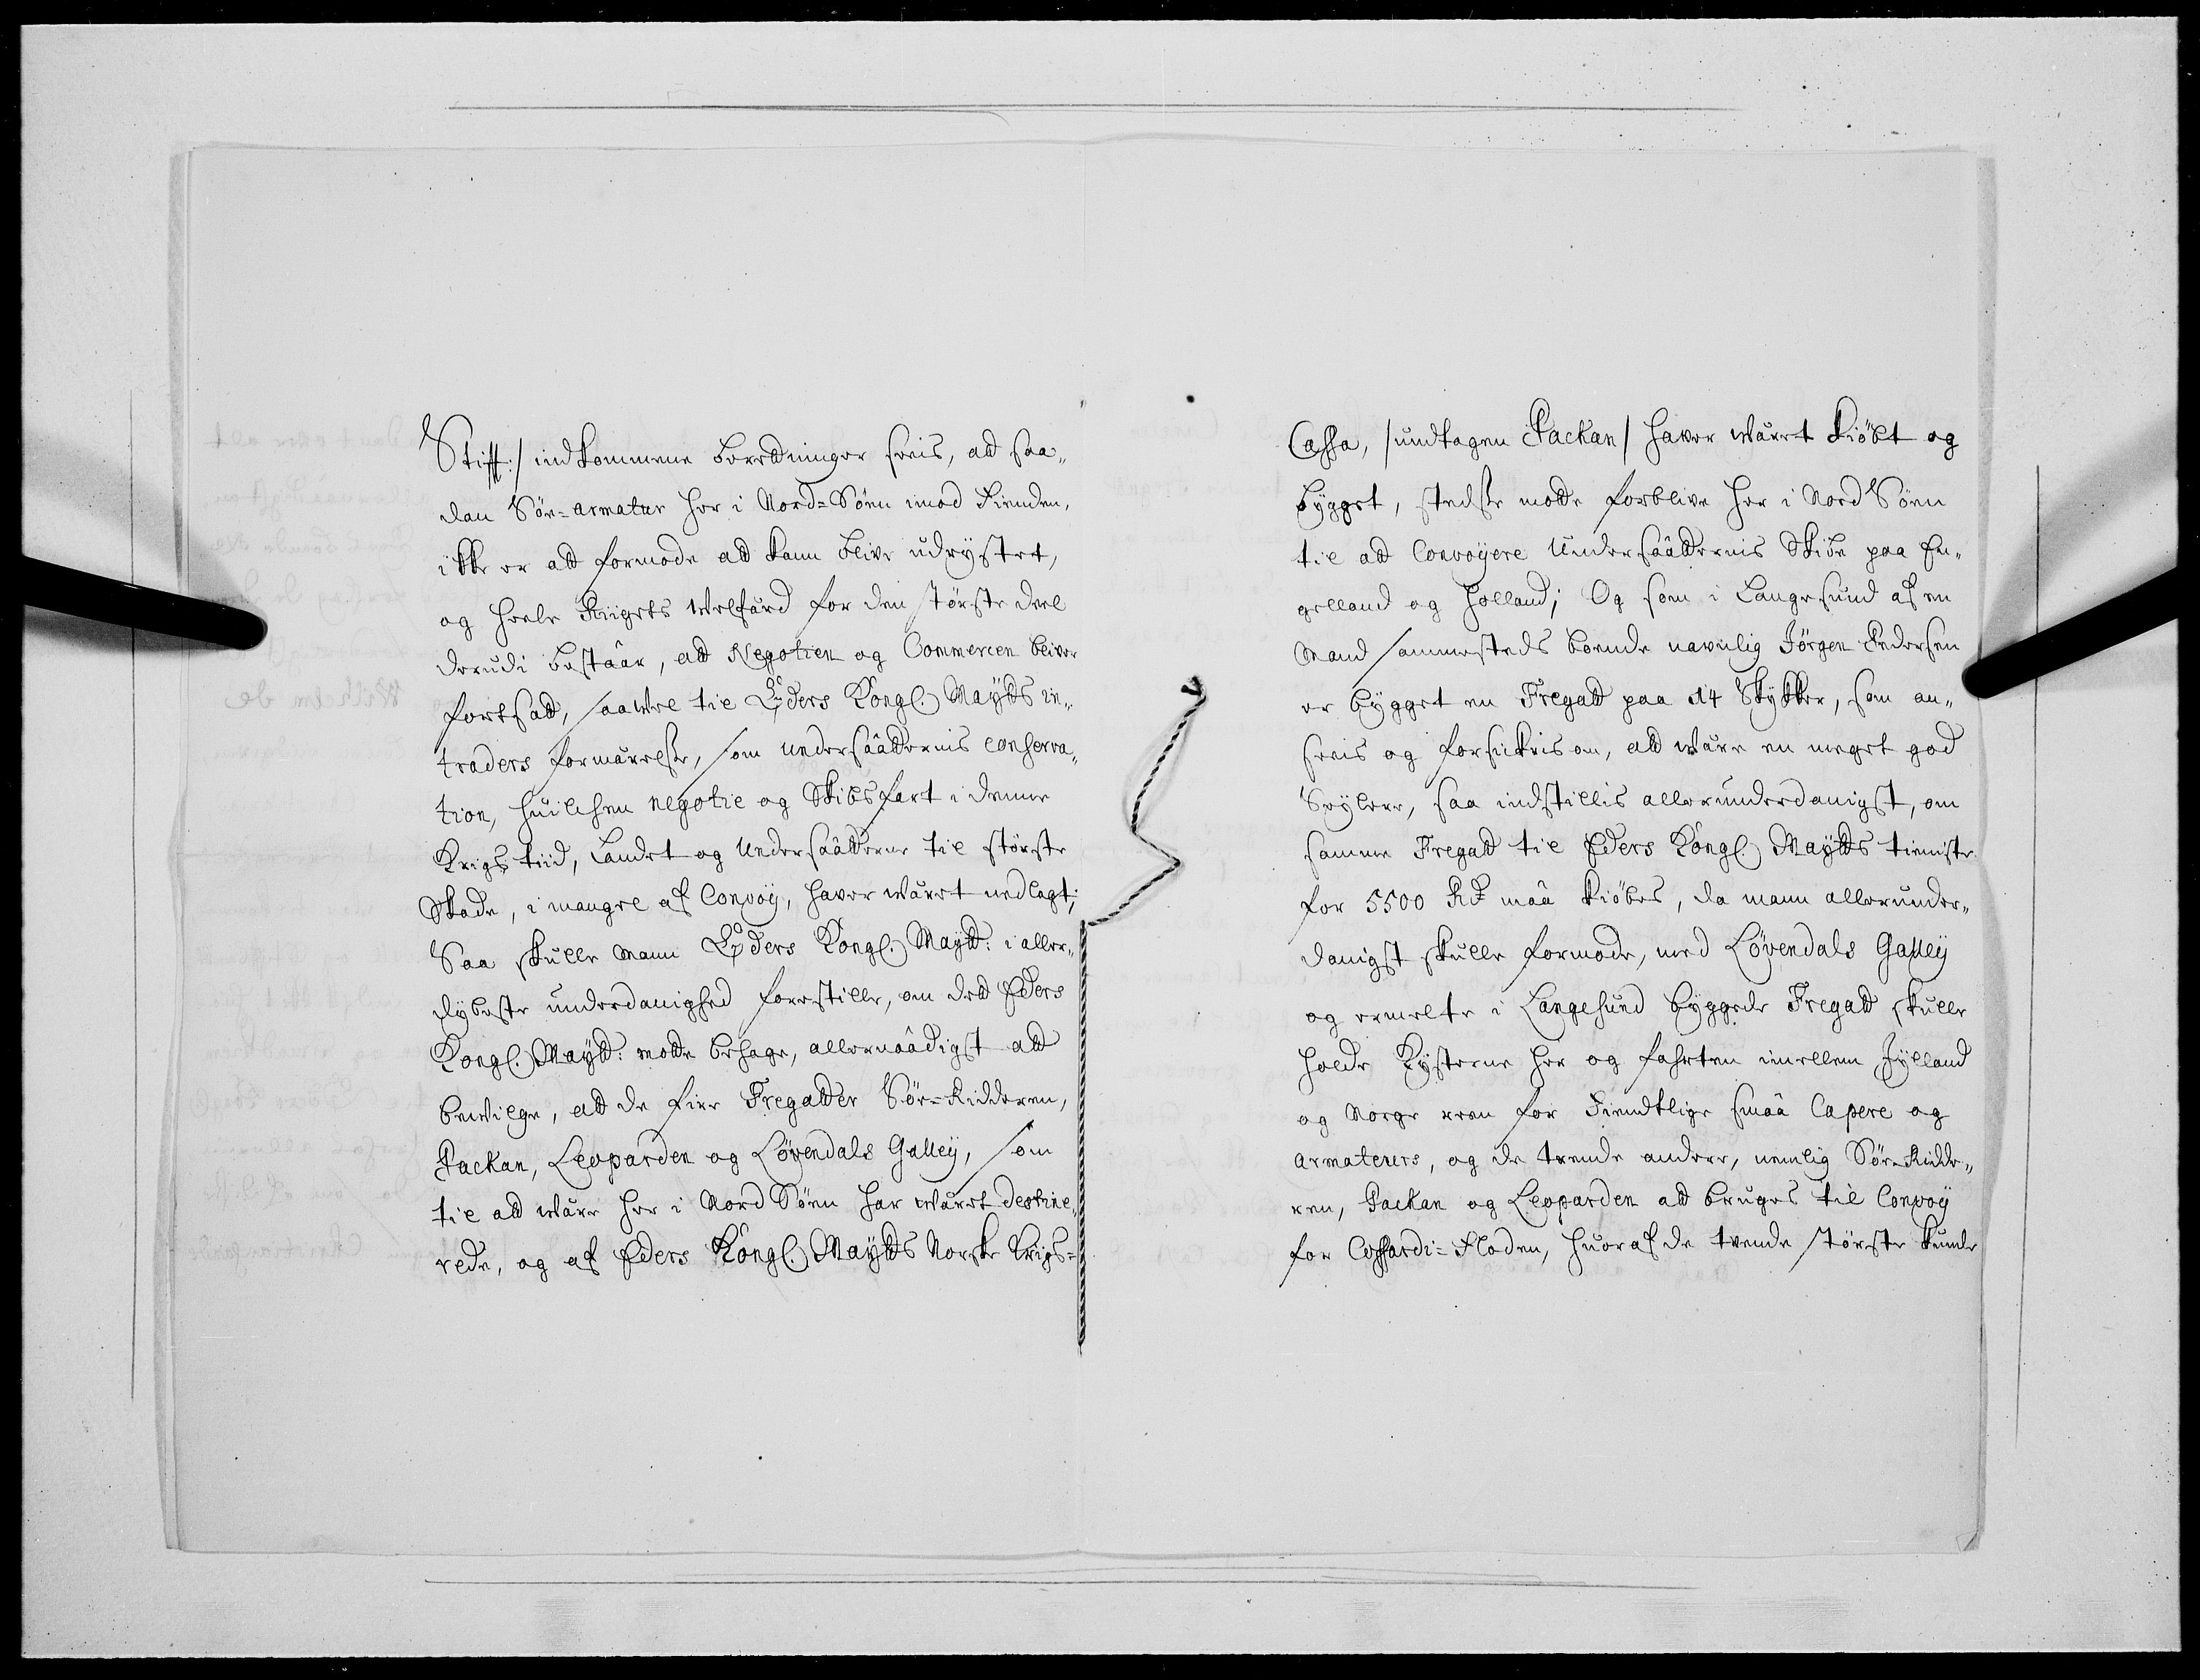 Stifft:/ indkommene beretninger sees, att saa„
dan Søe=armatur her i Nord=Søen imod Fienden,
ikke er att formode att kann blive udrystet,
og heele Riigets Welfærd for den største deel
derudi bestaar, att Negotien og Commercen bliver
fortsatt, saavel til Eders Kongl. Maytts in„
traders formeerelse, som undersaatternis conserva„
tion, huilchen negotie og Skibsfart i denne
Krigs tiid, Landet og Undersaatterne til største
Skade, i mangel af Convoy, haver wæret nedlagt;
Saa skulle mann Eders Kongl. Maytt: i aller„
dybeste underdanighed forestille, om dett Eders
Kongl. Maytt: motte behage, allernaadigst att
bewilge, att de fire Fregatter Søe=Ridderen,
Packan, Leoparden og Løvendals Galley, som
til att wære her i Nord Søen har wæret destine„
rede, og af Eders Kongl. Maytts Norske Krigs=
Cassa, /undtagen Packan/ haver wæret kiøbt og
bygget, stedse motte forblive her i Nord Søen
til att Convoyere Undersaatternis Skibe paa En„
gelland og Holland; Og som i Langesund af en
Mand sammesteds boende navnlig Jørgen Pedersen
er bygget en Fregatt paa 14 Stykker, som an„
sees og forsikris om, att være en meget god
Seylere, saa indstillis allerunderdanigst, om
samme Fregatt til Eders Kongl. Maytts tieniste
for 5500 Rd maa kiøbes, da mann allerunder„
danigst skulle formode, med Løvendals Galley
og ermelte i Langesund byggede Fregatt skulle
holde Kysterne her og fahrten imellem Jylland
og Norge reen for Fiendtlige smaa Capere og
Armateurs, og de trende andere, nemlig Søe=Ridde„
ren, Packan og Leoparden att bruges til Convoy
for Coffardi=Floden, huoraf de tvende største kunde